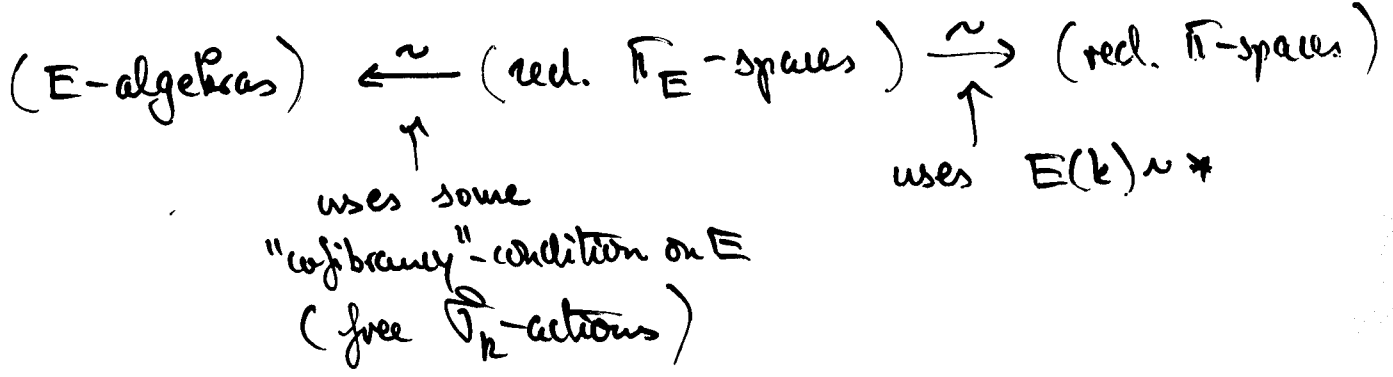 (E-algebras) ⟵~ (red. Π_E-spaces) ⟶~ (red. Π-spaces)
↑ ↑
uses some uses E(k) ~ *
"cofibrancy"-condition on E
(free σ_k-actions)